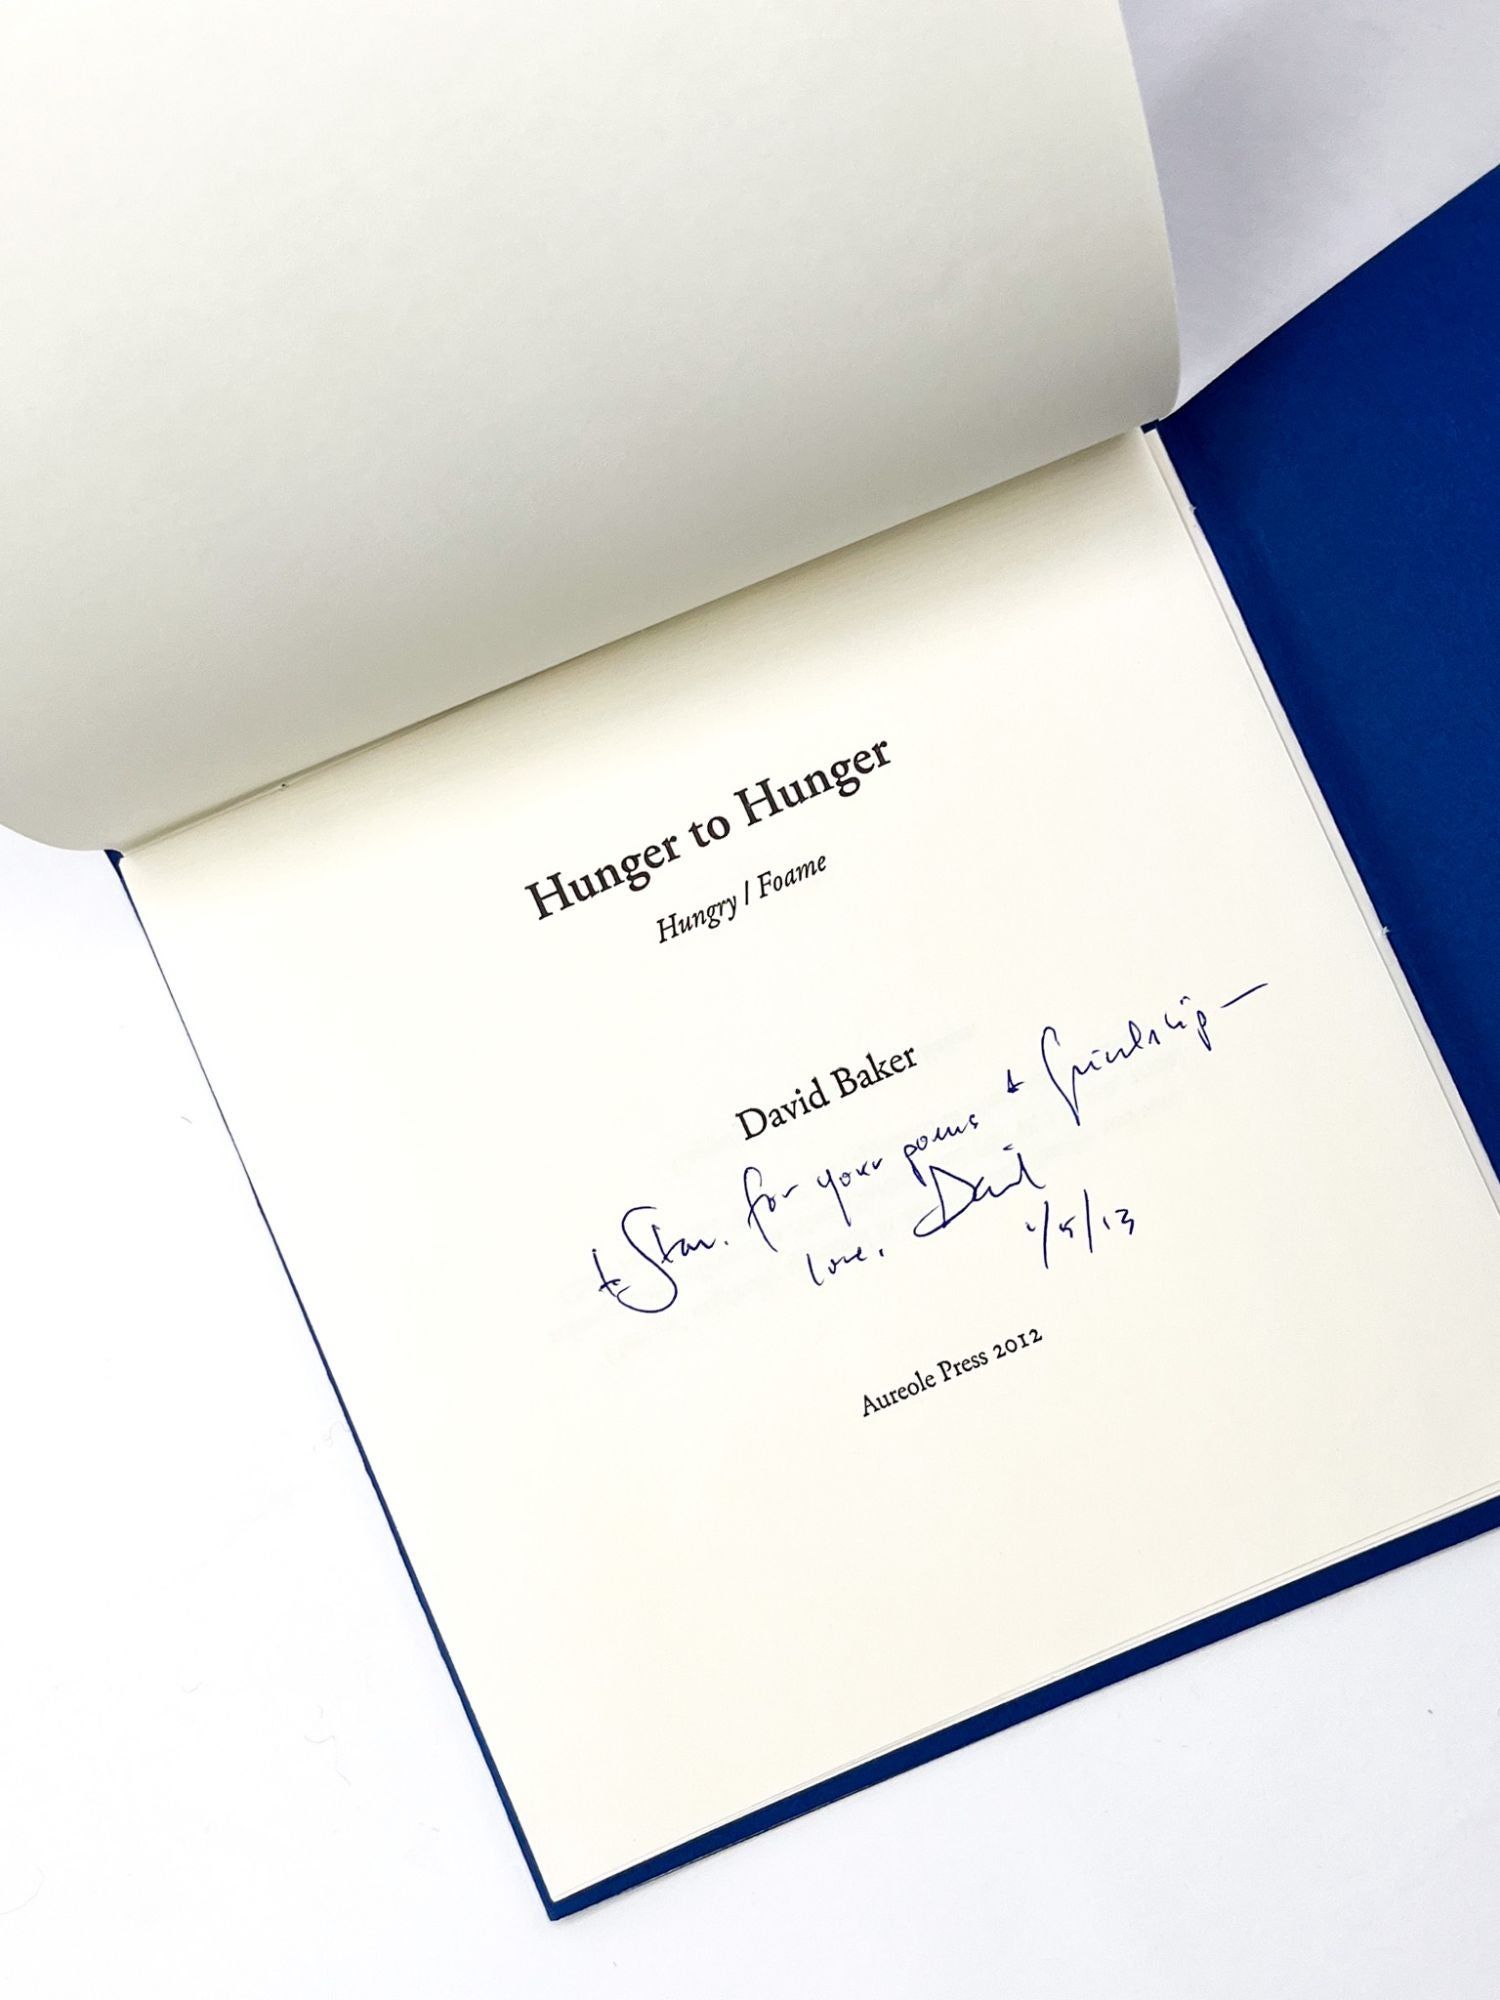 Hunger to Hunger
Hungry / Foame
David Baker
to Stan. for your poems & friendship —
love, David
1/5/13
Aureole Press 2012